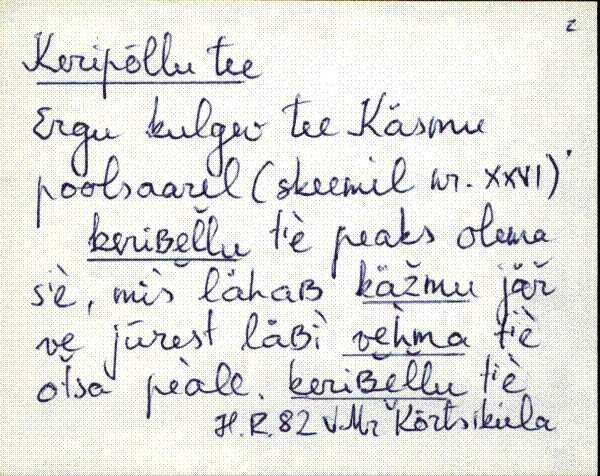 2
Keripõllu tee
Ergu kulgev tee Käsmu
poolsaarel (skeemil nr. XXVI)
keriʙel̆lu t'iè peaks olema
s'iè, mis lähaʙ käžmu jäř
ve jūrest läʙ̀i vèhma t'iè
ot̆sa pèale. keriʙel̆lu t'iè
H.R. 82 VMr Kõrtsiküla